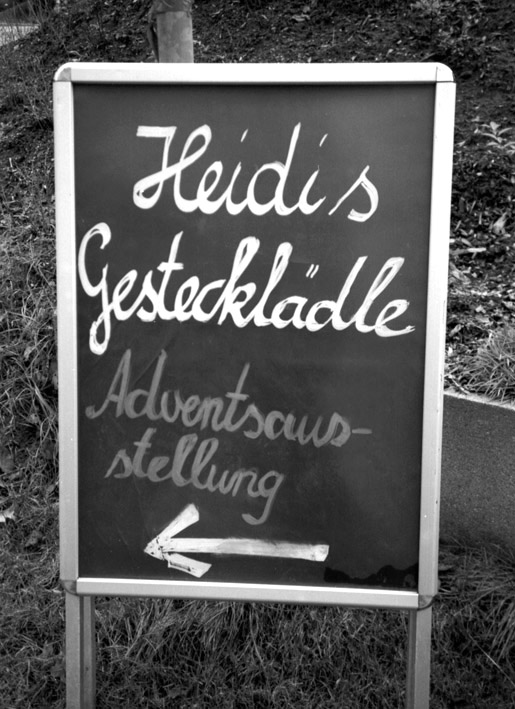 Heidi's
Gestecklädle
Adventsaus-
stellung